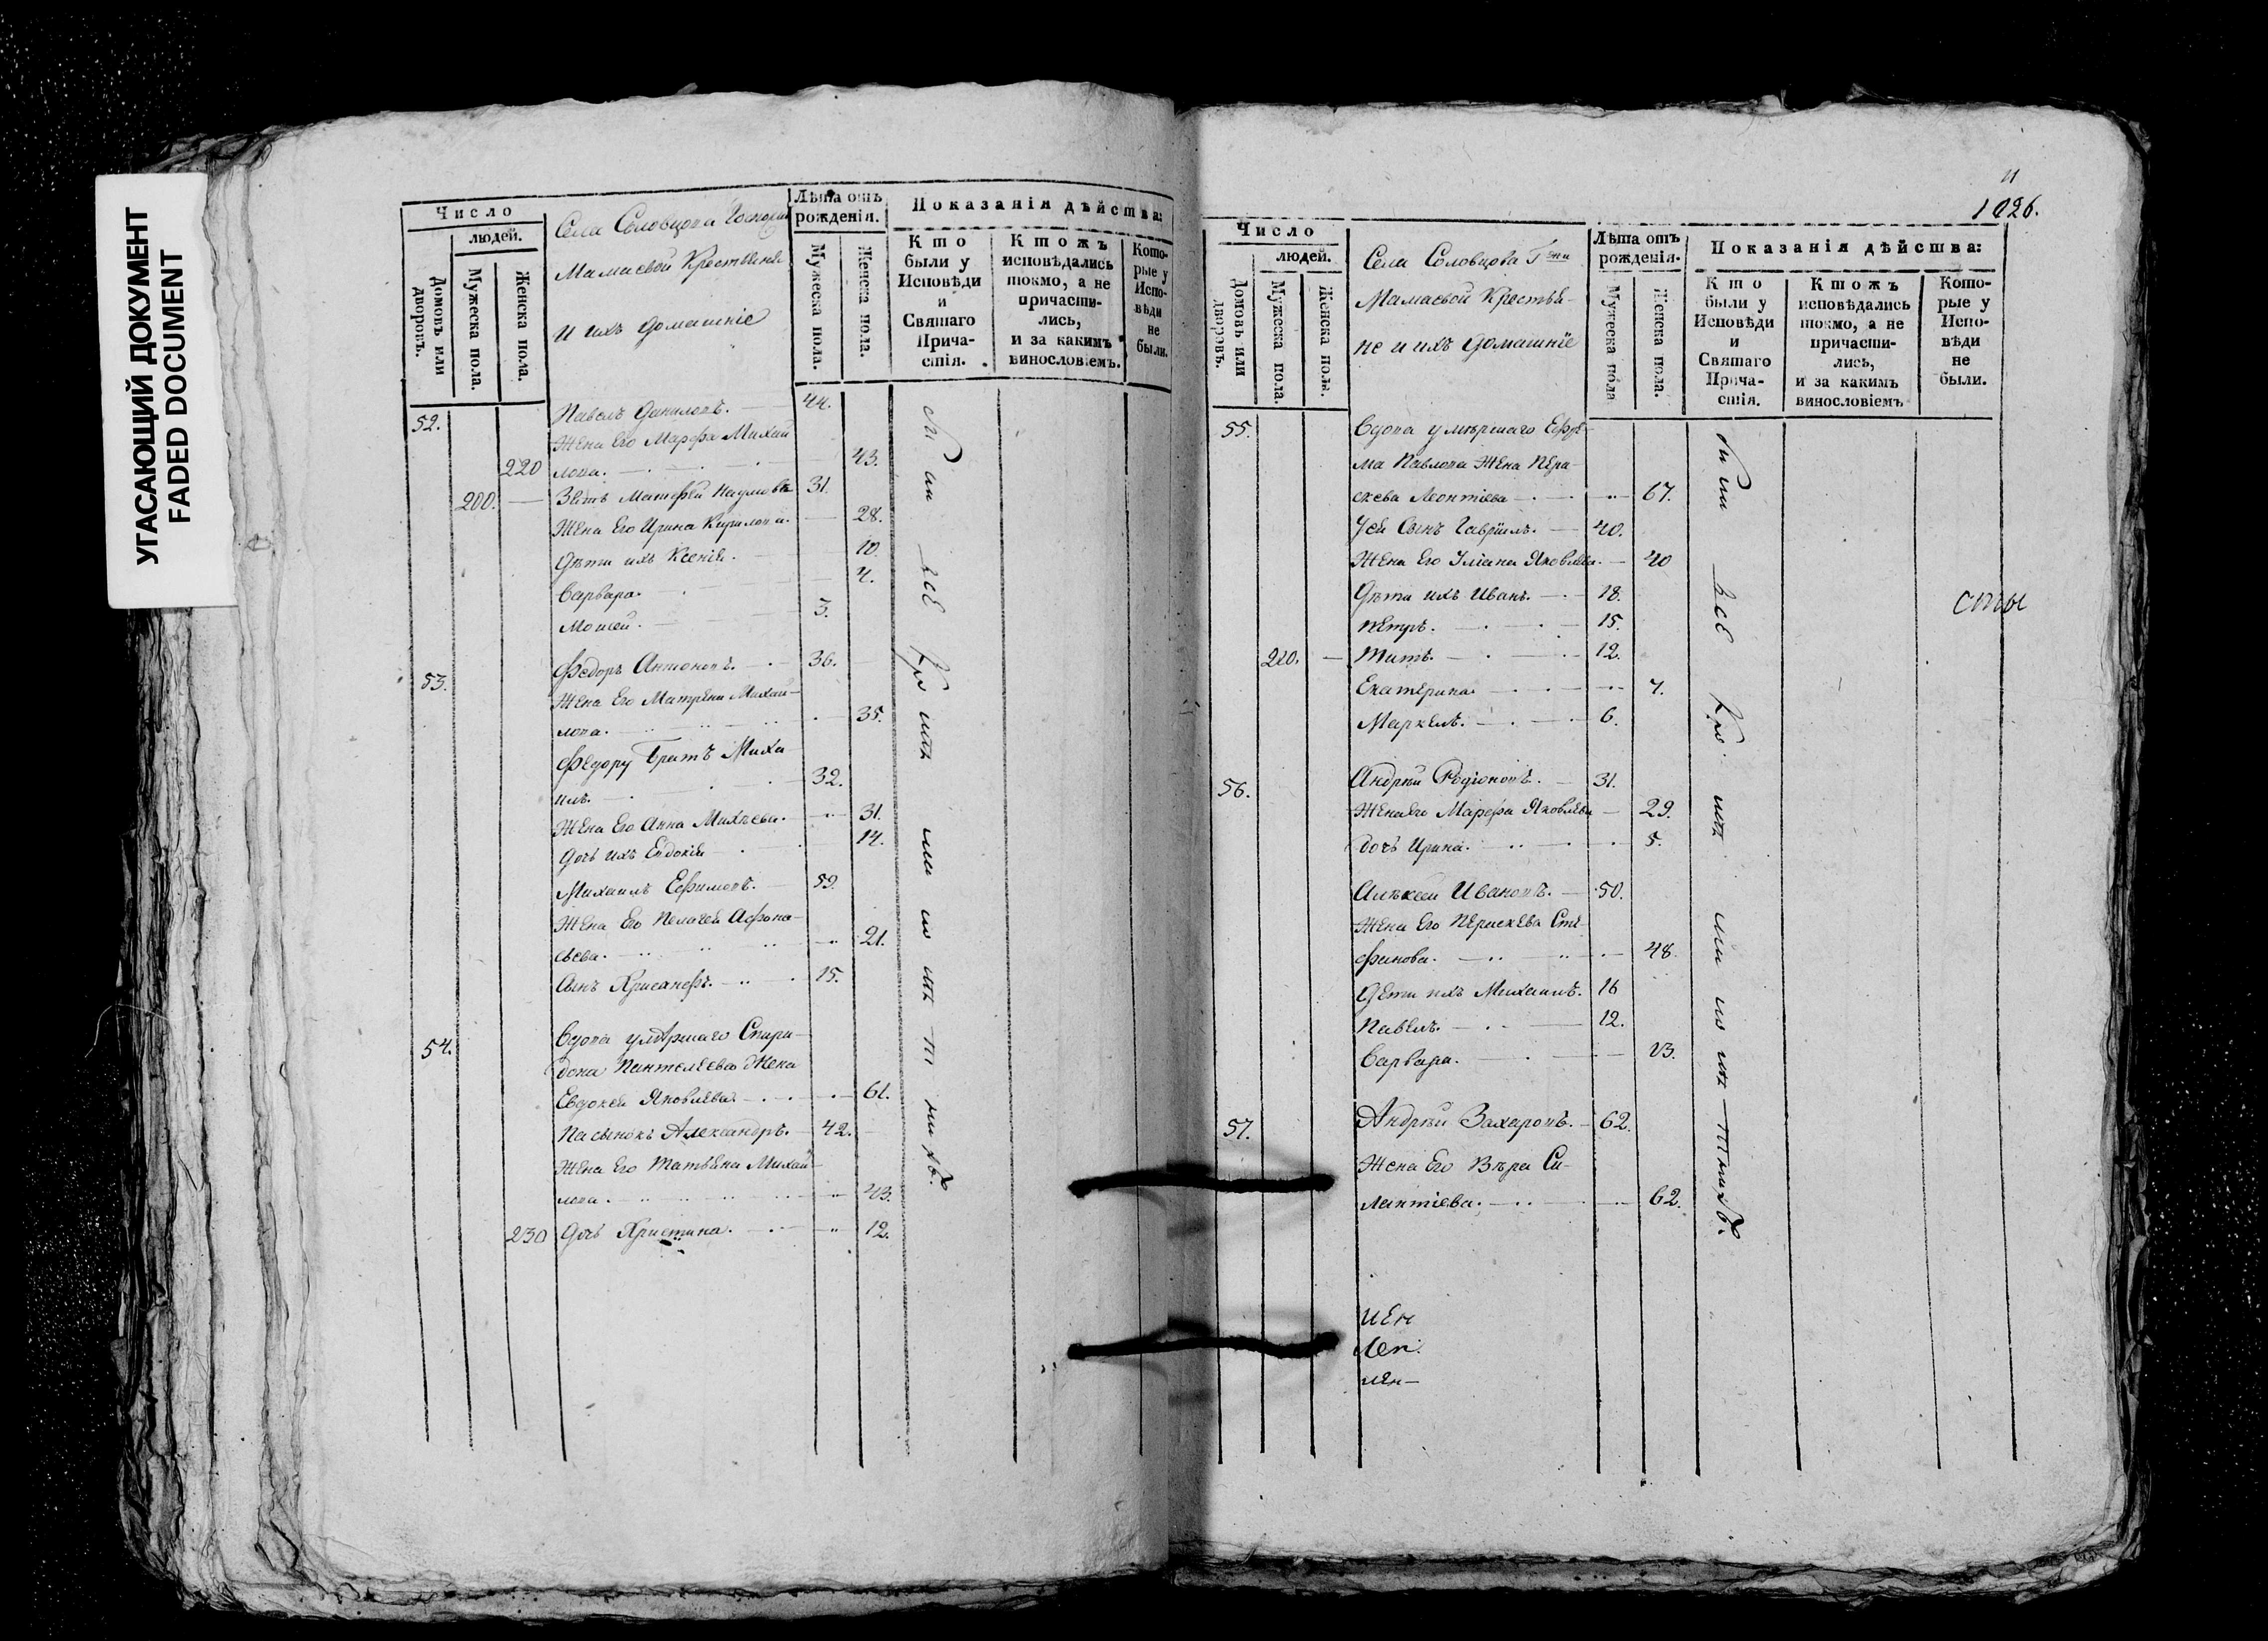 УГАСАЮЩИЙ ДОКУМЕНТ
FADED DOCUMENT
Число
людей.
Домовъ или дворовъ.
Мужеска пола.
Женска пола.
Села Соловцова Госпожи
Мамаевой Крестьяне
и ихъ домашніе
Лѣта отъ рожденія.
Мужеска пола.
Женска пола.
Показанія дѣйства:
Кто были у Исповѣди и Святаго Причастія.
Ктожъ исповѣдались токмо, а не причастились, и за какимъ винословіемъ.
Которые у Исповѣди не были.
52. Павелъ Даниловъ. 44.
Жена Его Марфа Михай
220 лова. 43.
200. Зять Матфей Наумовъ 31.
Жена Его Ирина Кирилова. 28.
Дѣти ихъ Ксенія. 10.
Варвара. 4.
Моисей. 3.
53. Федоръ Антоновъ. 36.
Жена Его Матрена Михай-
лова. 35.
Федору Братъ Миха
илъ. 32.
Жена Его Анна Михѣева. 31.
Дочь ихъ Евдокія 14.
Михаилъ Ефимовъ. 59.
Жена Его Пелагея Афона-
сьева. 21.
Сынъ Хрисанфъ. 15.
54. Вдова умершаго Спири-
дона Пантелеева Жена
Евдокея Яковлева. 61.
Пасынокъ Александръ. 42.
Жена Его Татьяна Михай-
лова. 43.
230 Дочь Христина. 12.
11
1026.
Число
людей.
Домовъ или дворовъ.
Мужеска пола.
Женска пола.
Села Соловцова Гжи
Мамаевой Крестья-
не и ихъ домашніе
Лѣта отъ рожденія.
Мужеска пола
Женска пола.
Показанія дѣйства:
Кто были у Исповѣди и Святаго Причастія.
Ктожъ исповѣдались токмо, а не причастились, и за какимъ винословіемъ
Которые у Исповѣди не были.
55. Вдова умершаго Ефре-
ма Павлова Жена Пера-
скева Леонтіева 67.
У ей Сынъ Гавріилъ. 40.
Жена Его Уліана Яковлева. 40
Дѣти ихъ Иванъ. 18.
Петръ. 15.
220. Титъ. 12.
Екатерина. 7.
Маркелъ. 6.
56. Андрей Родіоновъ. 31.
Жена Его Марфа Яковлева 29.
дочь Ирина. 5.
Алексей Ивановъ. 50.
Жена Его Пераскева Сте-
фанова. 48.
Дети ихъ Михаилъ. 16
Павелъ. 12.
Варвара. 13.
57. Андрей Захаровъ. 62.
Жена Его Вѣра Си-
лантіева. 62.